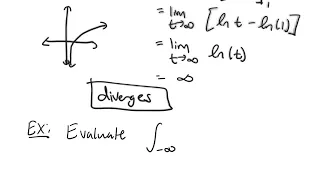 = lim t→∞ [ln t - ln(1)]
= lim t→∞ ln(t)
= ∞
diverges
Ex: Evaluate ∫-∞